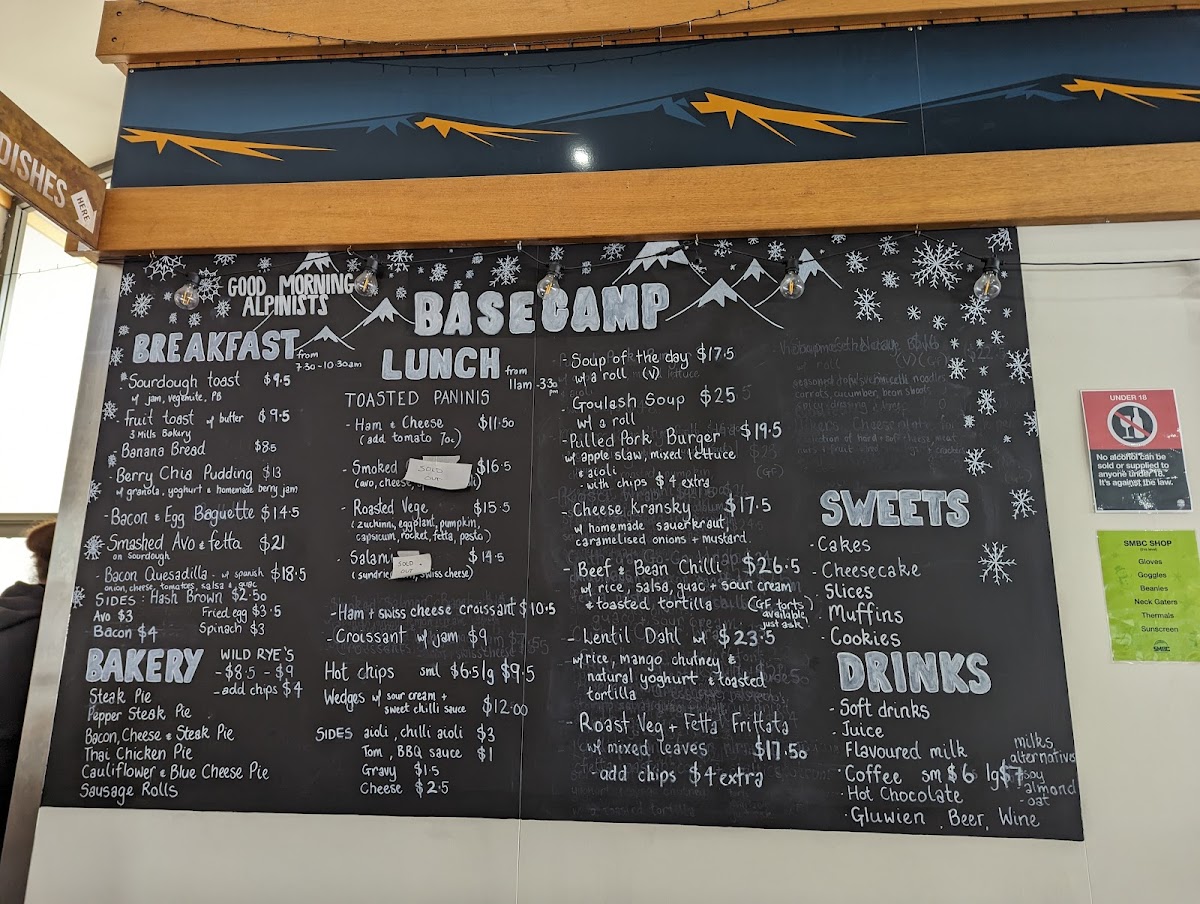 DISHES
HERE
GOOD MORNING
ALPINISTS
BASECAMP
BREAKFAST from
7:30-10:30am
Sourdough toast $9.5
w/ jam, vegemite, PB
- Fruit toast w/ butter $9.5
3 Mills Bakery
Banana Bread $8.5
- Berry Chia Pudding $13
w/ granola, yoghurt & homemade berry jam
- Bacon & Egg Baguette $14.5
Smashed Avo & fetta $21
on Sourdough
- Bacon Quesadilla - w/ spanish $18.5
onion, cheese, tomatoes, salsa & guac
SIDES: Hash Brown $2.50
Avo $3 Fried egg $3.5
Bacon $4 Spinach $3
BAKERY WILD RYE'S
- $8.5 - $9
- add chips $4
Steak Pie
Pepper Steak Pie
Bacon, Cheese & Steak Pie
Thai Chicken Pie
Cauliflower & Blue Cheese Pie
Sausage Rolls
LUNCH from
11am - 330
pm
TOASTED PANINIS
- Ham & Cheese $11.50
(add tomato 70c)
- Smoked SOLD OUT $16.5
(avo, cheese,
- Roasted Vege $15.5
(zuchinni, eggplant, pumpkin,
capsicum, rocket, fetta, pesto)
Salami SOLD OUT $14.5
(sundried swiss cheese)
- Ham + swiss cheese croissant $10.5
- Croissant w/ jam $9
Hot chips sml $6.5 lg $9.5
Wedges w/ sour cream +
sweet chilli sauce $12.00
SIDES aioli, chilli aioli $3
Tom, BBQ sauce $1
Gravy $1.5
Cheese $2.5
- Soup of the day $17.5
w/ a roll (V)
- Goulash Soup $25
w/ a roll
- Pulled Pork Burger $19.5
w/ apple slaw, mixed lettuce
& aioli
- with chips $4 extra
- Cheese Kransky $17.5
w/ homemade sauerkraut,
caramelised onions + mustard.
- Beef & Bean Chilli $26.5
w/ rice, salsa, guac + sour cream
& toasted tortilla (GF torts
available,
just ask)
- Lentil Dahl w/ $23.5
w/ rice, mango chutney &
natural yoghurt & toasted
tortilla
- Roast Veg + Fetta Frittata
w/ mixed leaves $17.50
- add chips $4 extra
SWEETS
- Cakes
- Cheesecake
- Slices
- Muffins
- Cookies
DRINKS
- Soft drinks
- Juice
Flavoured milk
· Coffee sm $6 lg $7
· Hot Chocolate
· Gluwien, Beer, Wine
milks
alternative
- soy
- almond
- oat
UNDER 18
No alcohol can be
sold or supplied to
anyone under 18.
It's against the law.
SMBC SHOP
Gloves
Goggles
Beanies
Neck Gaiters
Thermals
Sunscreen
SMBC